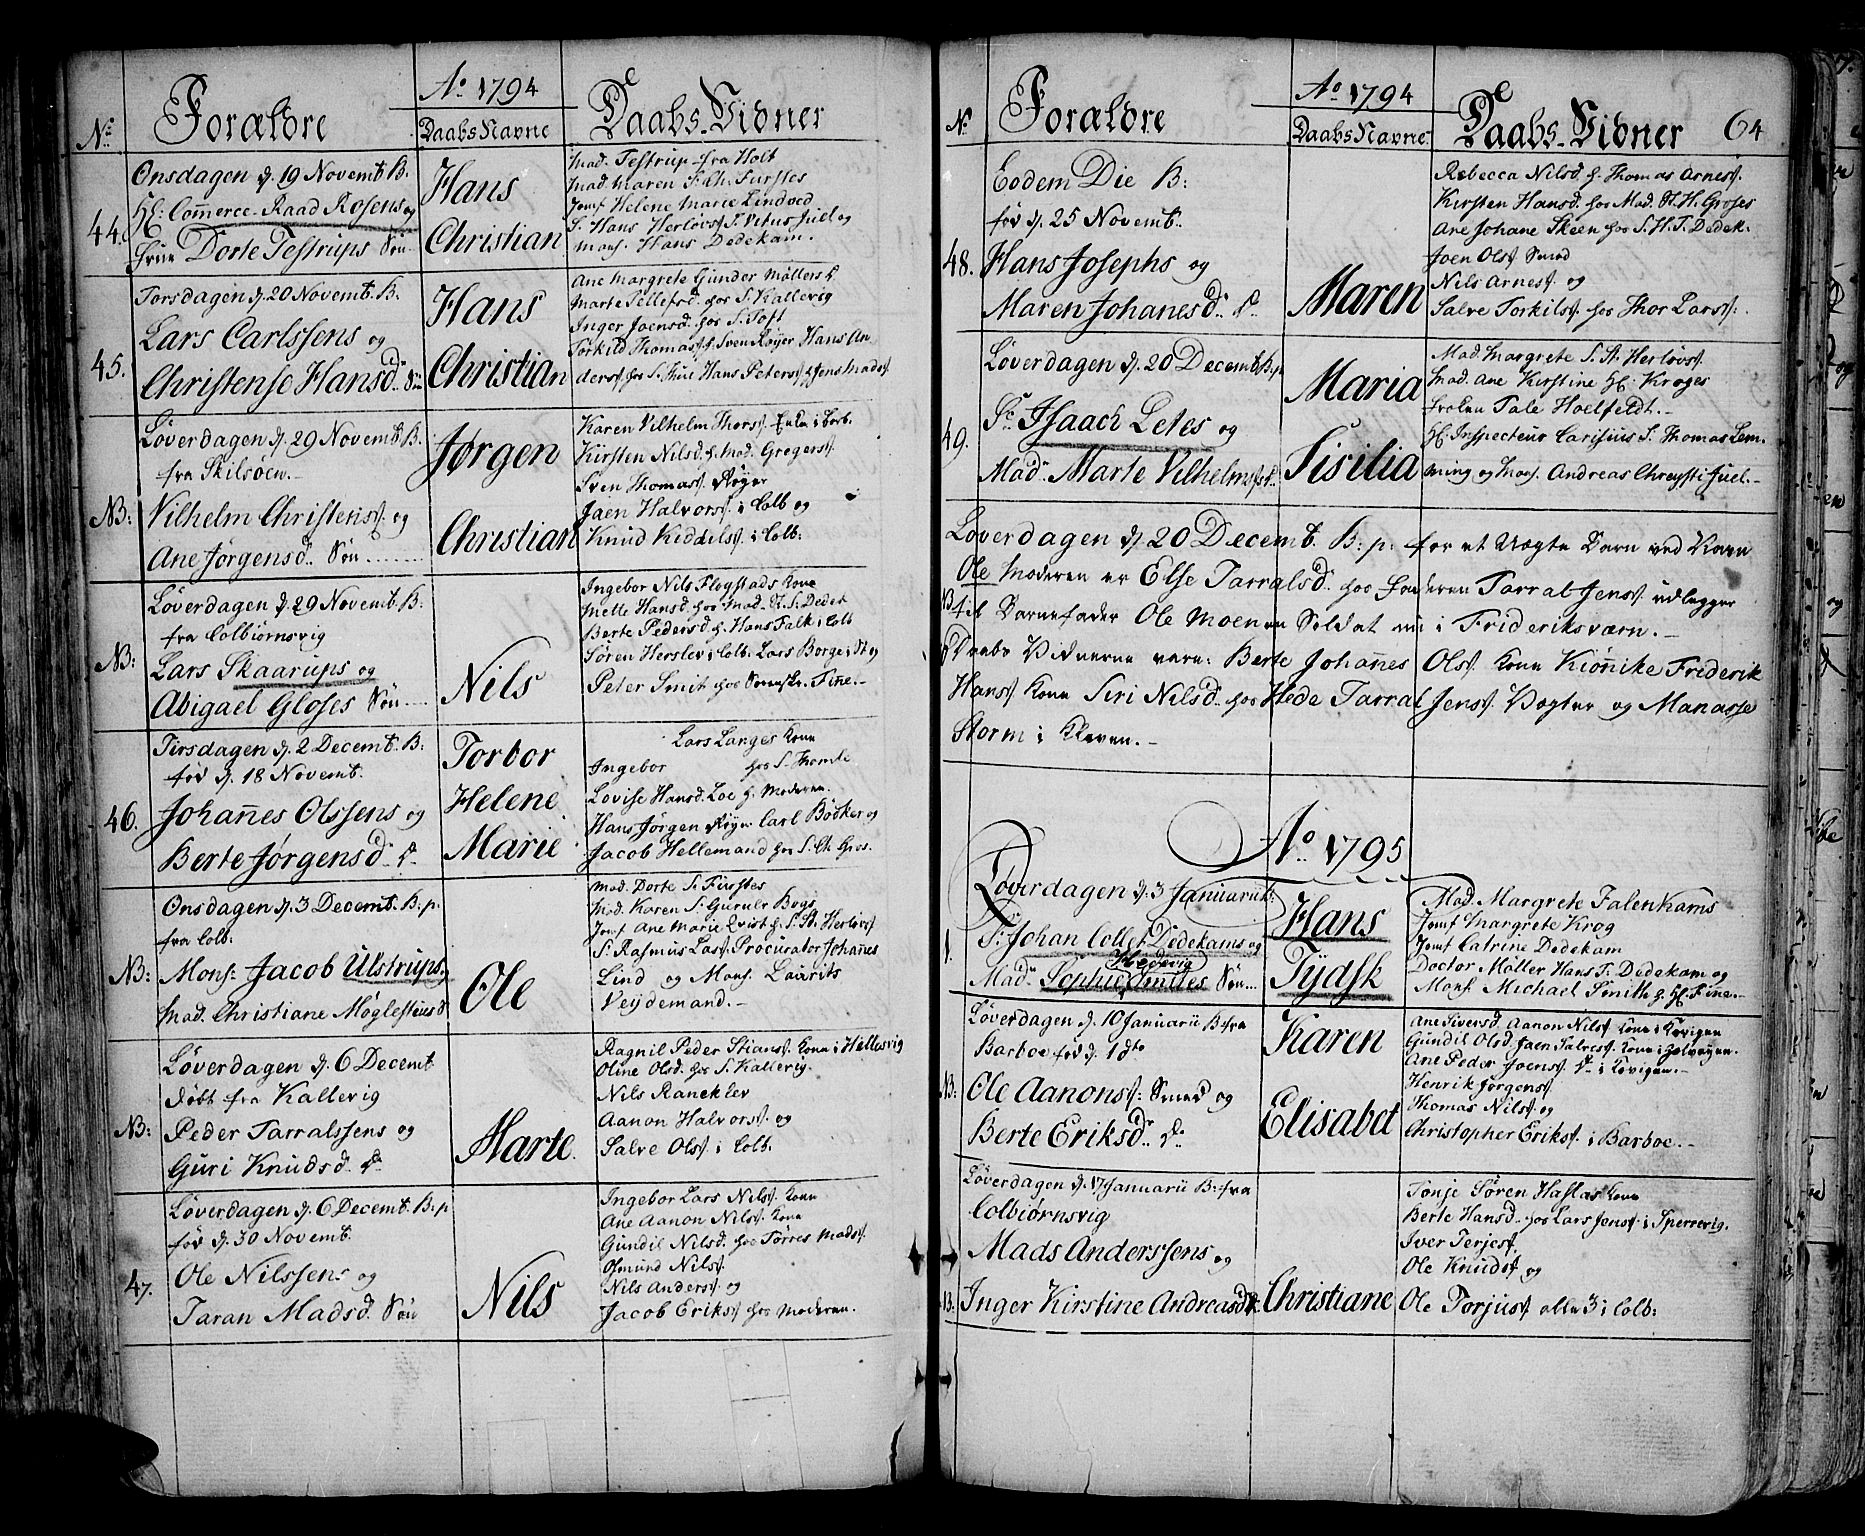 Ao 1794
No Forældre Daabs Navne Daabs-Vidner
Onsdagen d. 19 Novemb. B.
44. Hl: Commerce-Raad Rosens og
Frue Dorte Testrups Søn
Hans
Christian
Mad. Testrup fra Holt
Mad. Maren S. Ch. Furstes
Jomf. Helene Marie Lindved
S. Hans Herløvs S. Vitus Juel og
Mons. Hans Dedekam.
Torsdagen d. 20 Novemb. B.
45. Lars Carlssens og
Christense Hansd. Søn
Hans
Christian
Ane Margrete Gunder Møllers D
Marte Tellefsd. hos S. Kallevig
Inger Joensd. hos S. Toft
Torkild Thomass. h. Sven Røyer Hans An
derss. hos S. Juel Hans Peters Jens Mads
Løverdagen d. 29 Novemb. B.
fra Skilsøen.
NB: Vilhelm Christens. og
Ane Jørgensd. Søn
Jørgen
Christian
Karen Vilhelm Thorss. Enke i Colb.
Kirsten Nilsd. h. Mad. Gregers.
Sven Thomass. Røyer
Jaen Halvors. i Colb og
Knud Kiddels. i Colb:
Løverdagen d. 29 Novemb. B.
fra Colbiørnsvig
NB: Lars Skaarups og
Abigael Gloses Søn
Nils
Ingebor Nils Flogstads Kone
Melle Hansd. hos Mad. K. S. Dedek
Berte Pedersd. h. Hans Falk i Colb
Søren Herslev i Colb. Lars Borge i St og
Peter Smit hos Sorenskr. Fine.
Tirsdagen d. 2 Decemb. B.
fød d. 18 Novemb.
46. Johannes Olssens og
Berte Jørgensd. D.
Torbor
Helene
Marie
Lars Langes Kone
Ingebor hos S. Thomle
Lovise Hansd. Loe h. Moderen.
Hans Jørgen Røyn. Carl Bödker og
Jacob Hellemand hos S. Ch. Gros.
Onsdagen d. 3 Decemb. B. p.
fra Colb.
NB: Mons: Jacob Ulstrups og
Mad. Christiane Møglestues D
Ole
Mad. Dorte S. Furstes
Mad. Karen S. Guruler Boys
Jomf Ane Marie Qvist h. S. St. Herløvs
S. Rasmus Lass. Procurator Johanes
Lind og Mons. Laurits
Veydemand.
Løverdagen d. 6 Decemb.
døbt fra Kallevig
NB: Peder Tarralssens og
Guri Knudsd. D.
Marte.
Ragnil Peder Stians. Kone i Hellesvig
Oline Olsd. hos S. Kallevig.
Nils Raneklev
Aanon Halvors. og
Salve Ols. i Colb.
Løverdagen d. 6 Decemb. B. p
fød d. 30 Novemb.
47. Ole Nilssens og
Taran Madsd. Søn
Nils
Ingebor Lars Nils. Kone
Ane Aanon Nils. Kone
Gundil Nilsd. hos Tørres Mads.
Osmund Nils.
Nils Anders. og
Jacob Eriks. hos Moderen.
Ao 1794
No Forældre Daabs Navne Daabs-Vidner 64
Eodem Die B:
fød d. 25 Novemb.
48. Hans Josephs og
Maren Johanesd. D.
Maren
Rebecca Nilsd. h. Thomas Arnes.
Kirsten Hansd. hos Mad. St. H. Groses
Ane Johane Skeen hos S. H. T. Dedek.
Joen Ols. Smed
Nils Arnes. og
Salve Torkils. hos Thor Lars.
Løverdagen d. 20 Decemb. B. p.
49. Sr. Isaach Letes og
Mad. Marte Vilhelms. D.
Maria
Sisilia
Mad. Margrete S. St. Herløvs
Mad. Ane Kirstine Hl. Kroges
Frøken Tale Hoelfeldt.
Hl. Inspecteur Carisius S. Thomas Lem
ming og Mons. Andreas Chreysti Juel.
Løverdagen d. 20 Decemb. B. p. for et Uægte Barn ved Navn
Ole Moderen er Else Tarralsd. hos Faderen Tarral Jens. udlegger
til Barnefader Ole Moen en Soldat nu i Frideriksværn.
Daabs Vidnerne vare: Berte Johannes Ols. Kone Kiønike Frederik
Hans. Kone Siri Nilsd. hos Hede Tarral Jens. Vogter og Manasse
Storm i Kleven.
Ao 1795
Løverdagen d. 3 Januarii B.
1. Sr. Johan Collet Dedekams og
Hedevig
Mad. Sophie Smittes Søn
Hans
Tydsk
Mad. Margrete Falenkams
Jomf Margrete Krog
Jomf Catrine Dedekam
Doctor Møller Hans T. Dedekam og
Mons. Michael Smith h. Hl. Fine.
Løverdagen d. 10 Januarii B. fra
Barboe fød d. 1 dto
NB: Ole Aanons. Smed og
Berte Eriksd. D.
Karen
Elisabet
Ane Siversd. Aanon Nils. Kone i Kovigen
Gundil Olsd. Jaen Salves. Kone i
Ane Peder Joens. D. i Kovigen.
Henrik Jørgens.
Thomas Nils. og
Christopher Eriks. i Barboe.
Løverdagen d. 17 Januarii B. fra
Colbiørnsvig
Mads Anderssens og
NB. Inger Kirstine Andreasd. D.
Christiane
Tonje Søren Haslas Kone
Berte Hansd. hos Lars Jens. i Sperrevig.
Iver Terjes.
Ole Knuds. og
Ole Torjus. alle 3 i Colb: